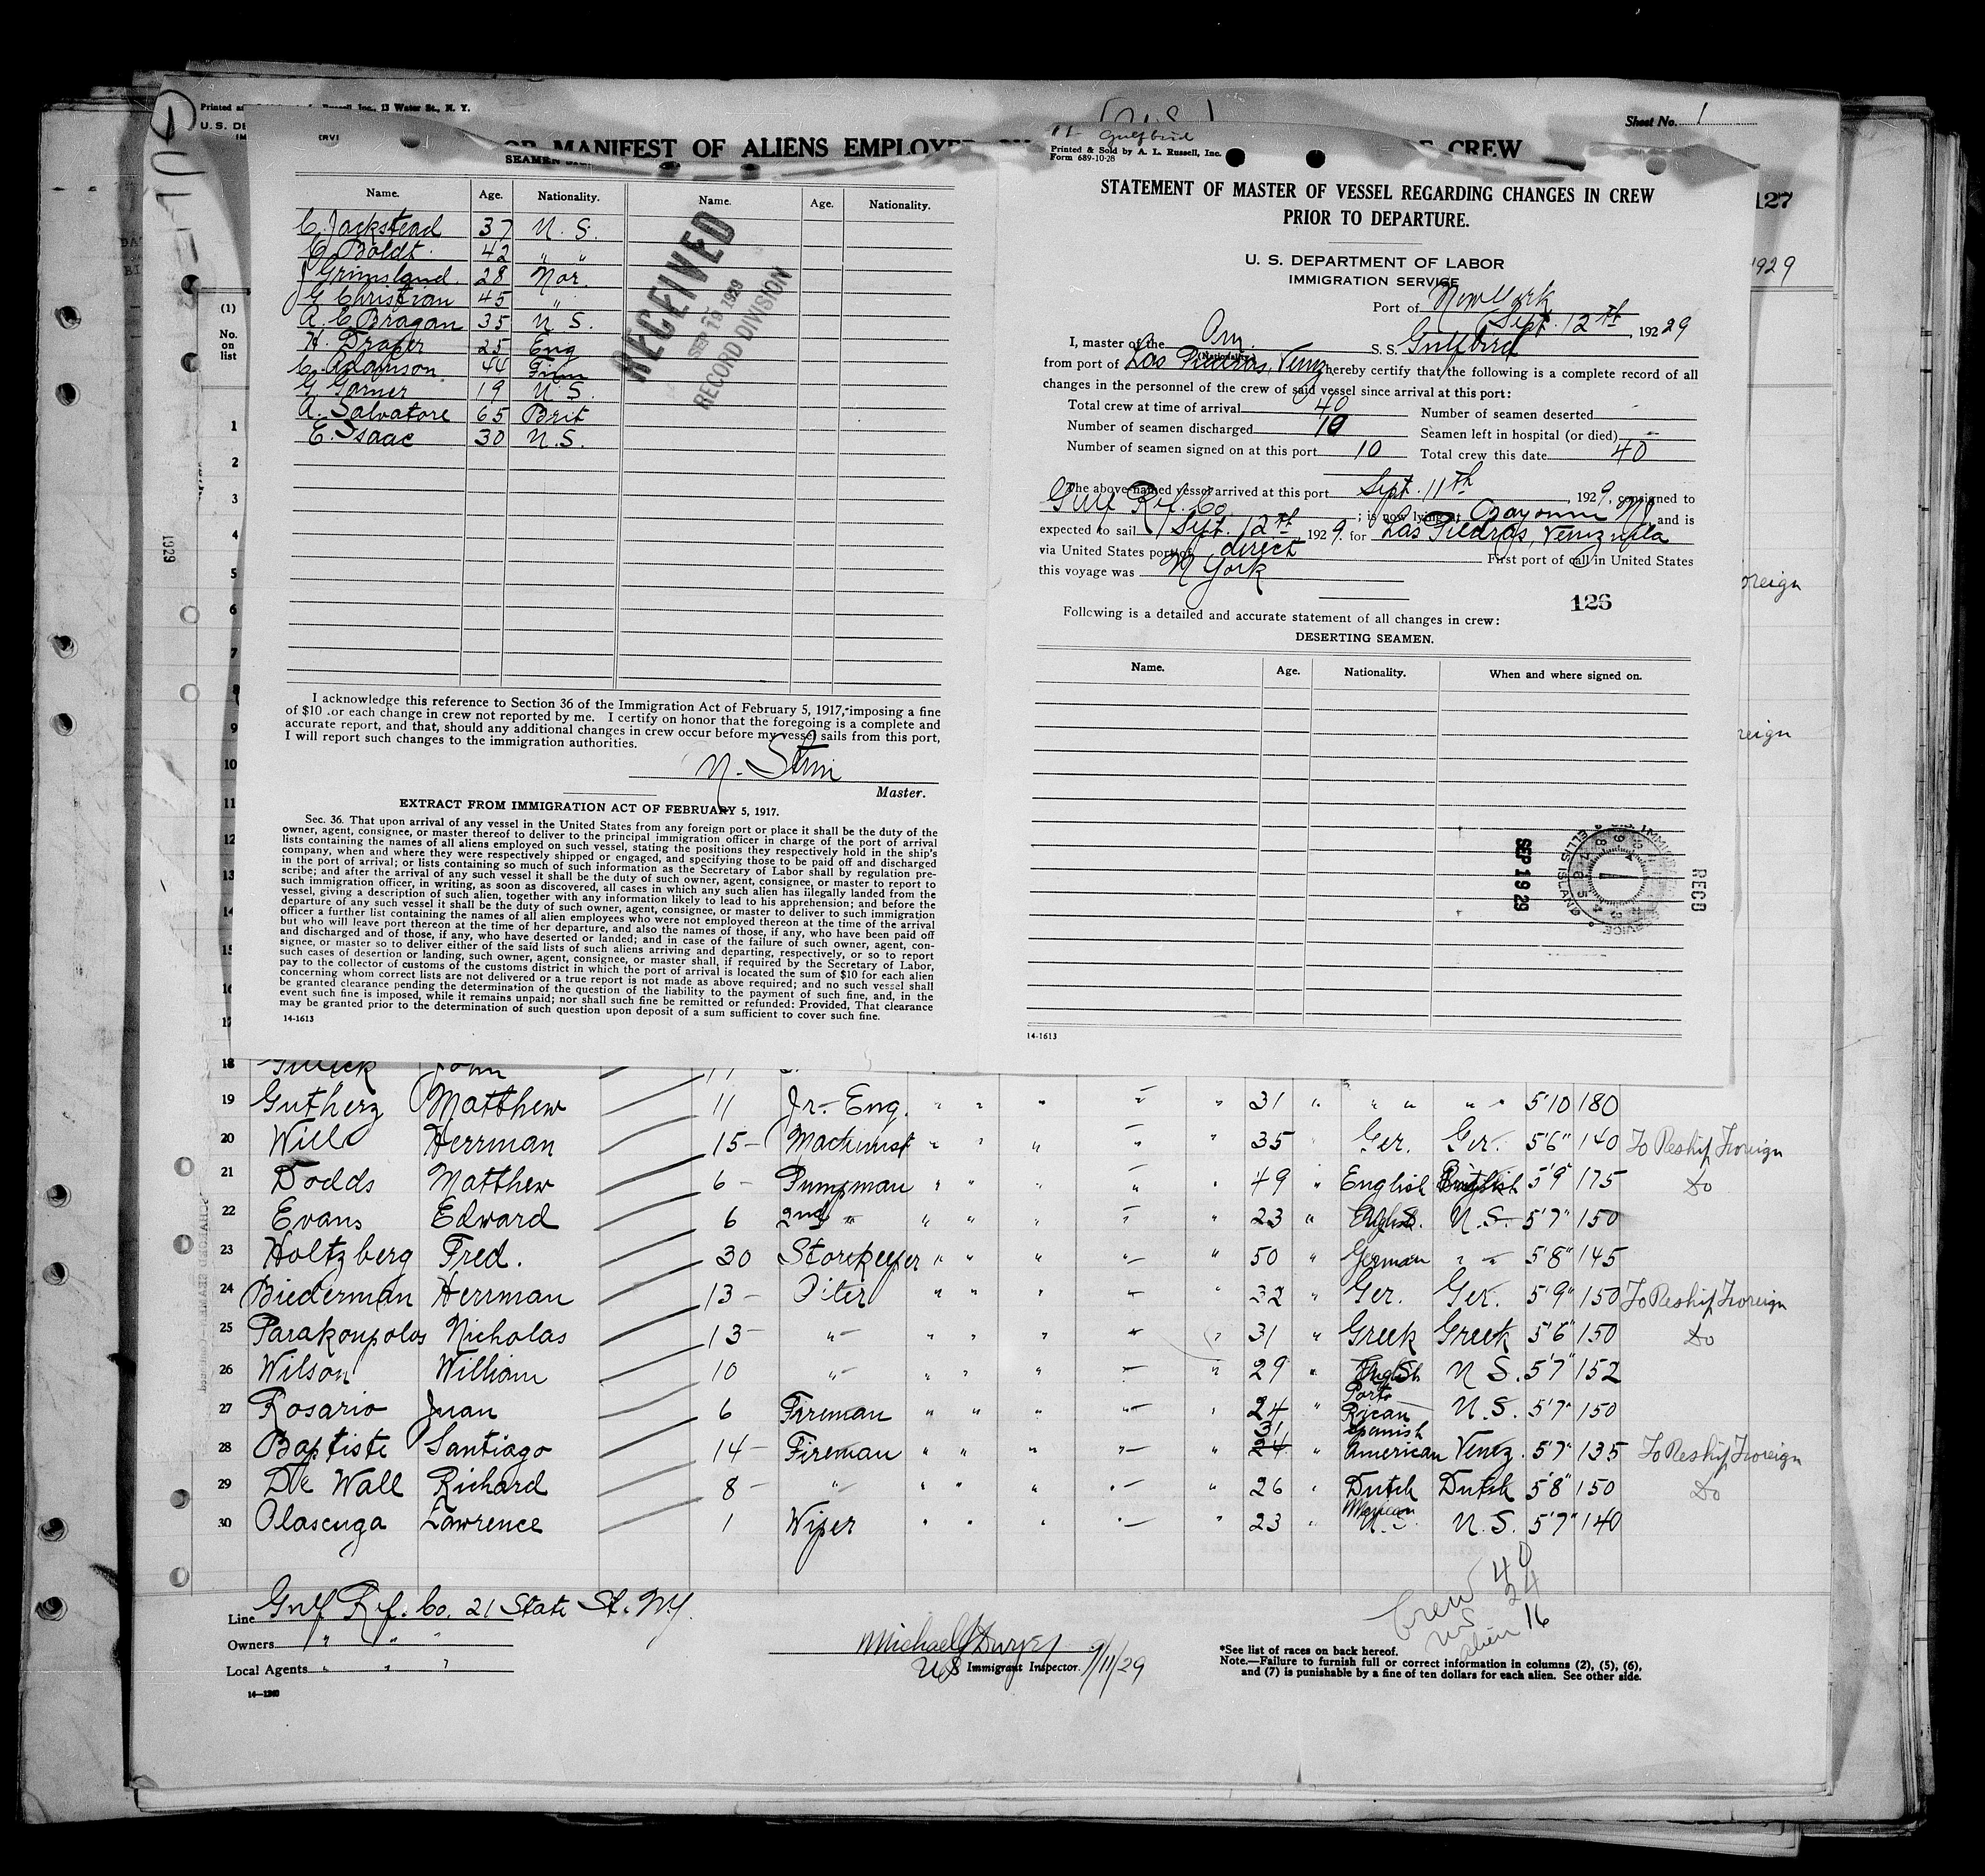 Printed
Russell Inc., 13 Water St., N. Y.
U. S. DE
Sheet No. 1
OR MANIFEST OF ALIENS EMPLOYED
CREW
127
1929
(1)
No.
on
list
SEAMEN
Name. Age. Nationality. Name. Age. Nationality.
C. Jackstead 37 U. S.
C. Boldt. 42 " "
J Grimsland. 28 Nor.
G Christian 45 "
A. C Bragan 35 U S.
H. Draper 25 Eng
C. Adamson 44 Finn
G Garner 19 U S.
A. Salvatore 65 Brit
E. Isaac 30 U.S.
RECEIVED
SEP 19 1929
RECORD DIVISION
I acknowledge this reference to Section 36 of the Immigration Act of February 5, 1917, imposing a fine
of $10 for each change in crew not reported by me. I certify on honor that the foregoing is a complete and
accurate report, and that, should any additional changes in crew occur before my vessel sails from this port,
I will report such changes to the immigration authorities.
Master.
EXTRACT FROM IMMIGRATION ACT OF FEBRUARY 5, 1917.
Sec. 36. That upon arrival of any vessel in the United States from any foreign port or place it shall be the duty of the
owner, agent, consignee, or master thereof to deliver to the principal immigration officer in charge of the port of arrival
lists containing the names of all aliens employed on such vessel, stating the positions they respectively hold in the ship's
company, when and where they were respectively shipped or engaged, and specifying those to be paid off and discharged
in the port of arrival; or lists containing so much of such information as the Secretary of Labor shall by regulation pre-
scribe; and after the arrival of any such vessel it shall be the duty of such owner, agent, consignee, or master to report to
such immigration officer, in writing, as soon as discovered, all cases in which any such alien has illegally landed from the
vessel, giving a description of such alien, together with any information likely to lead to his apprehension; and before the
departure of any such vessel it shall be the duty of such owner, agent, consignee, or master to deliver to such immigration
officer a further list containing the names of all alien employees who were not employed thereon at the time of the arrival
but who will leave port thereon at the time of her departure, and also the names of those, if any, who have been paid off
and discharged and of those, if any, who have deserted or landed; and in case of the failure of such owner, agent, con-
signee, or master so to deliver either of the said lists of such aliens arriving and departing, respectively, or so to report
such cases of desertion or landing, such owner, agent, consignee, or master shall, if required by the Secretary of Labor,
pay to the collector of customs of the customs district in which the port of arrival is located the sum of $10 for each alien
concerning whom correct lists are not delivered or a true report is not made as above required; and no such vessel shall
be granted clearance pending the determination of the question of the liability to the payment of such fine, and, in the
event such fine is imposed, while it remains unpaid; nor shall such fine be remitted or refunded: Provided, That clearance
may be granted prior to the determination of such question upon deposit of a sum sufficient to cover such fine.
14-1613
Gulfbird
Printed & Sold by A. L. Russell, Inc.
Form 689-10-28
STATEMENT OF MASTER OF VESSEL REGARDING CHANGES IN CREW
PRIOR TO DEPARTURE.
U. S. DEPARTMENT OF LABOR
IMMIGRATION SERVICE
Port of New York
Sept. 12th, 1929
I, master of the Am. S. S. Gulfbird
(Nationality)
from port of Las Piedras, Venz, hereby certify that the following is a complete record of all
changes in the personnel of the crew of said vessel since arrival at this port:
Total crew at time of arrival 40 Number of seamen deserted -
Number of seamen discharged 10 Seamen left in hospital (or died) -
Number of seamen signed on at this port 10 Total crew this date 40
The above-named vessel arrived at this port Sept. 11th, 1929, consigned to
Gulf Ref. Co.; is now lying at Bayonne NJ, and is
expected to sail Sept. 12th, 1929. for Las Piedras, Venezuela
via United States port of direct First port of call in United States
this voyage was N York
126
Following is a detailed and accurate statement of all changes in crew:
DESERTING SEAMEN.
Name. Age. Nationality. When and where signed on.
RECD
SEP 19 29
ELLIS ISLAND
14-1613
18 Gulick John 11
19 Gutherz Matthew 11 Jr. Eng. " " " " " 31 " " " " " 5'10 180
20 Will Herrman 15- Machinist " " " " " 35 " Ger. Ger. 5'6" 140 To Reship Foreign
21 Dodds Matthew 6- Pumpman " " " " " 49 " English British 5'9" 175 Do
22 Evans Edward 6 2nd " " " " " " 23 " U.S. 5'7" 150
23 Holtzberg Fred. 30 Storekeeper " " " " " 50 " German " " 5'8" 145
24 Biederman Herrman 13- Oiler " " " " " 32 " Ger. Ger. 5'9" 150 To Reship Foreign
25 Parakoupolos Nicholas 13- " " " " " " 31 " Greek Greek 5'6" 150 Do
26 Wilson William 10 " " " " " " 29 " English U S. 5'7" 152
27 Rosario Juan 6 Fireman " " " " " 24 " Porto Rican U.S. 5'7" 150
28 Baptiste Santiago 14- Fireman " " " " " 31 24 " Spanish American Venez. 5'7" 135 To Reship Foreign
29 De Wall Richard 8- " " " " " " 26 " Dutch Dutch 5'8" 150 Do
30 Olascuga Lawrence 1 Wiper " " " " " 23 " Mexican U.S. 5'7" 140
Line Gulf Ref. Co. 21 State St. N.Y.
Owners " " "
Local Agents " " "
14-1240
US Immigrant Inspector. 9/11/29
Crew 40
US 24
alien 16
*See list of races on back hereof.
Note.—Failure to furnish full or correct information in columns (2), (5), (6),
and (7) is punishable by a fine of ten dollars for each alien. See other side.